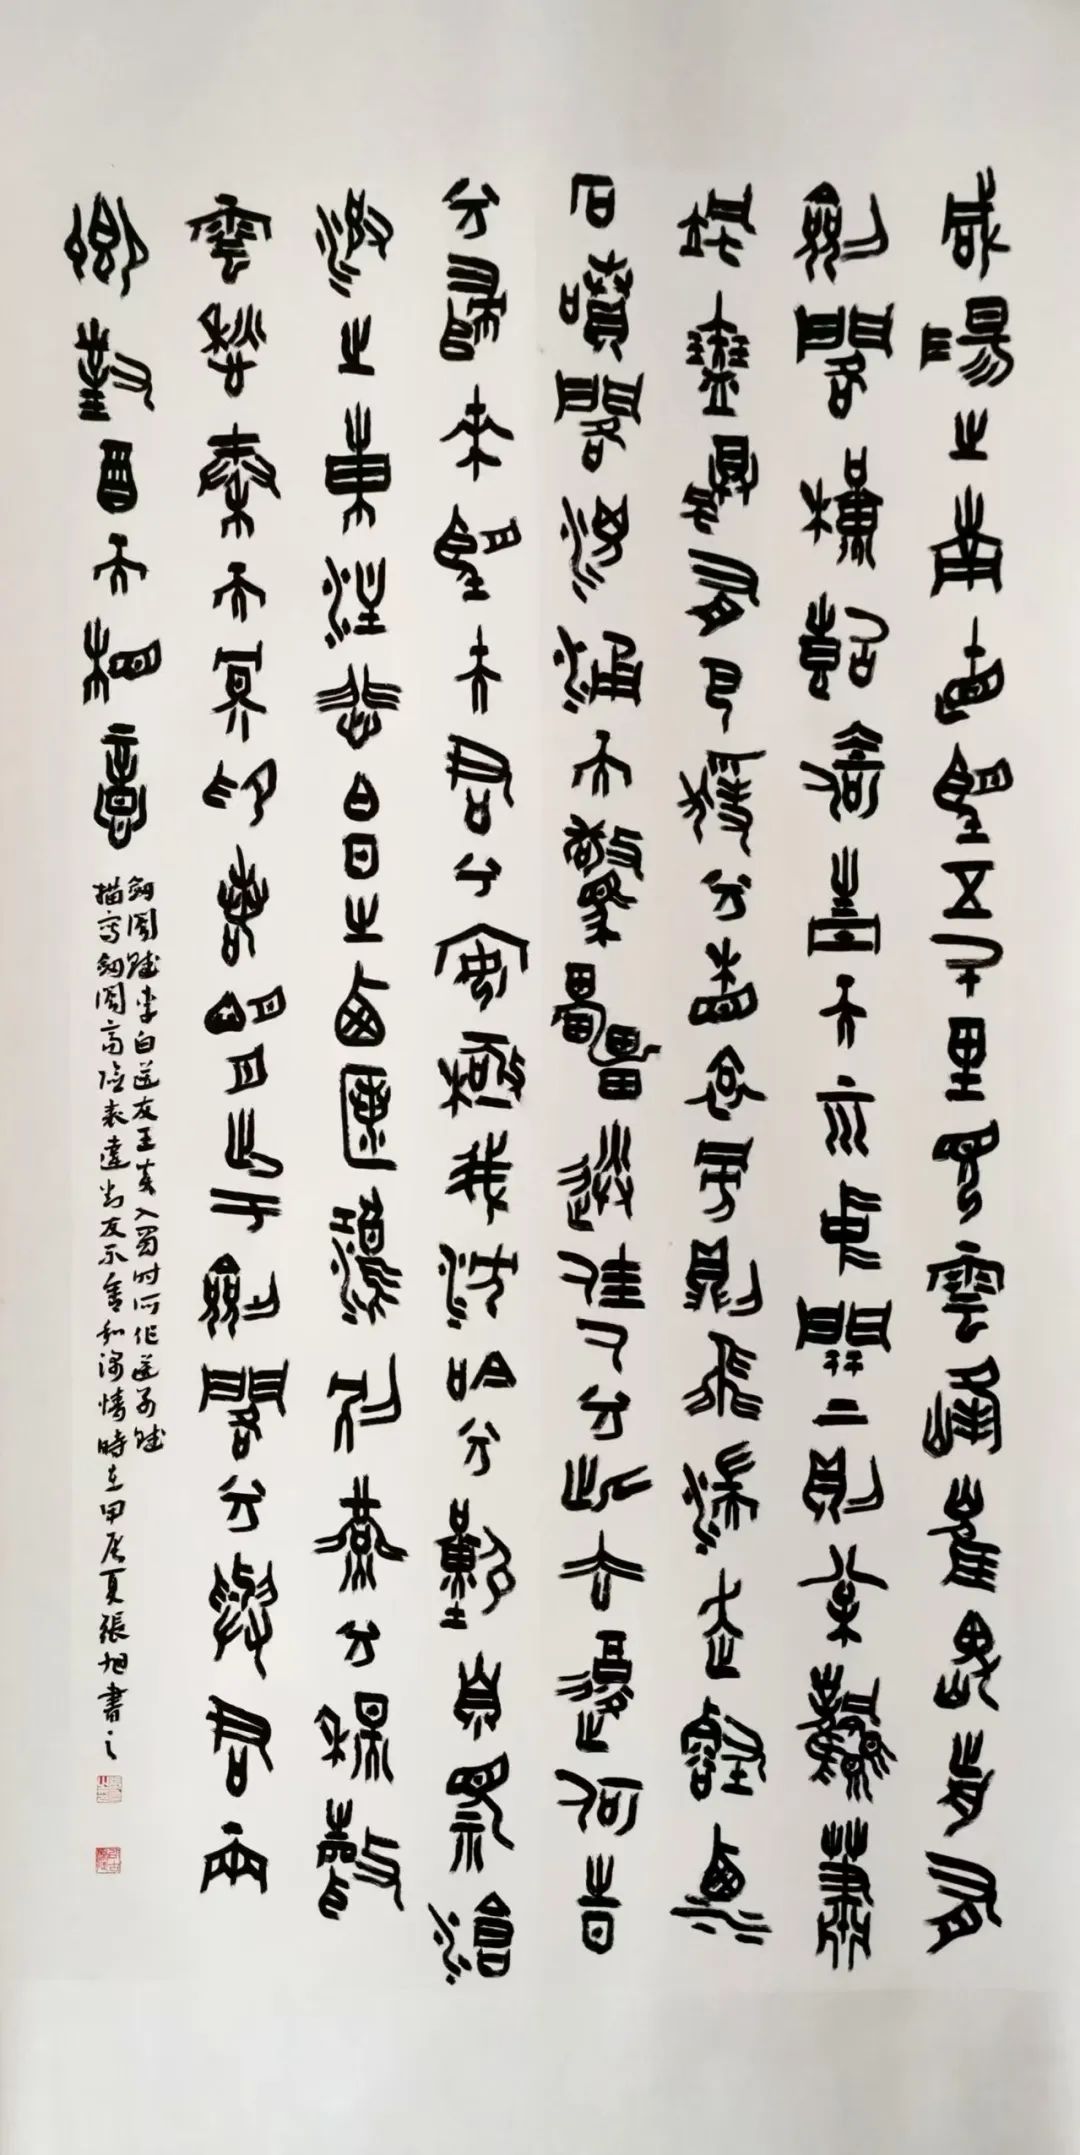 咸陽之南直望五千里見雲峰崔嵬前有
劍閣橫斷倚青天而中開上則松風蕭
颯瑟颶有巴猿兮相哀旁則飛湍走壑灑
石噴閣洶涌而驚雷送佳人兮此去復何時
兮歸來望夫君兮安極我沉吟兮歎息視滄
波之東注悲白日之西匿鴻別燕兮秋聲
雲愁秦而冥色若明月出于劍閣兮與君兩
鄉對酒而相意
劍閣賦李白送友王炎入蜀时所作送别賦
描寫劍閣高險表達对友不舍和深情時在甲辰夏張旭書之